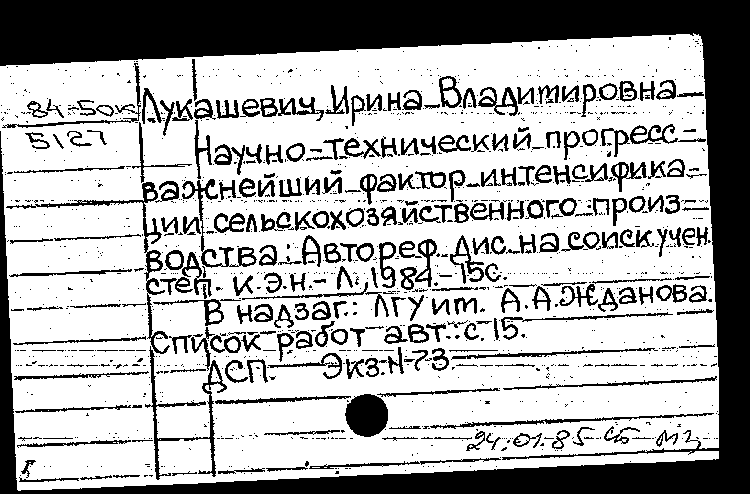 84-5ок Лукашевич, Ирина Владимировна
5127
Научно-технический прогресс-
важнейший фактор интенсифика-
ции сельскохозяйственного произ-
водства: Автореф. дис. на соиск. учен.
степ. к.э.н.-Л., 1984.-15с.
В надзаг.: ЛГУ им. А.А.Жданова.
Список работ авт.: с.15.
ДСП. Экз.N-73.
24.01.85